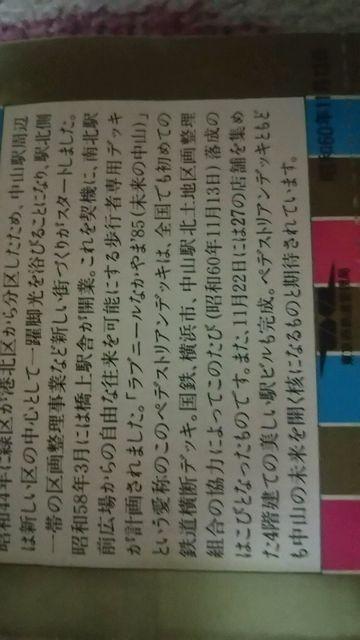 昭和44年に緑区が港北区から分区したため、中山駅周辺
は新しい区の中心として一躍脚光を浴びることになり、駅北側
一帯の区画整理事業など新しい街づくりがスタートしました。
昭和58年3月には橋上駅舎が開業。これを契機に、南北駅
前広場からの自由な往来を可能にする歩行者専用デッキ
が計画されました。「ラブニールなかやま'85(未来の中山)」
という愛称のこのペデストリアンデッキは、全国でも初めての
鉄道横断デッキ。国鉄、横浜市、中山駅北土地区画整理
組合の協力によってこのたび(昭和60年11月13日)落成の
はこびとなったものです。また、11月22日には27の店舗を集め
た4階建ての美しい駅ビルも完成。ペデストリアンデッキともど
も中山の未来を開く核になるものと期待されています。
昭和60年11月13日